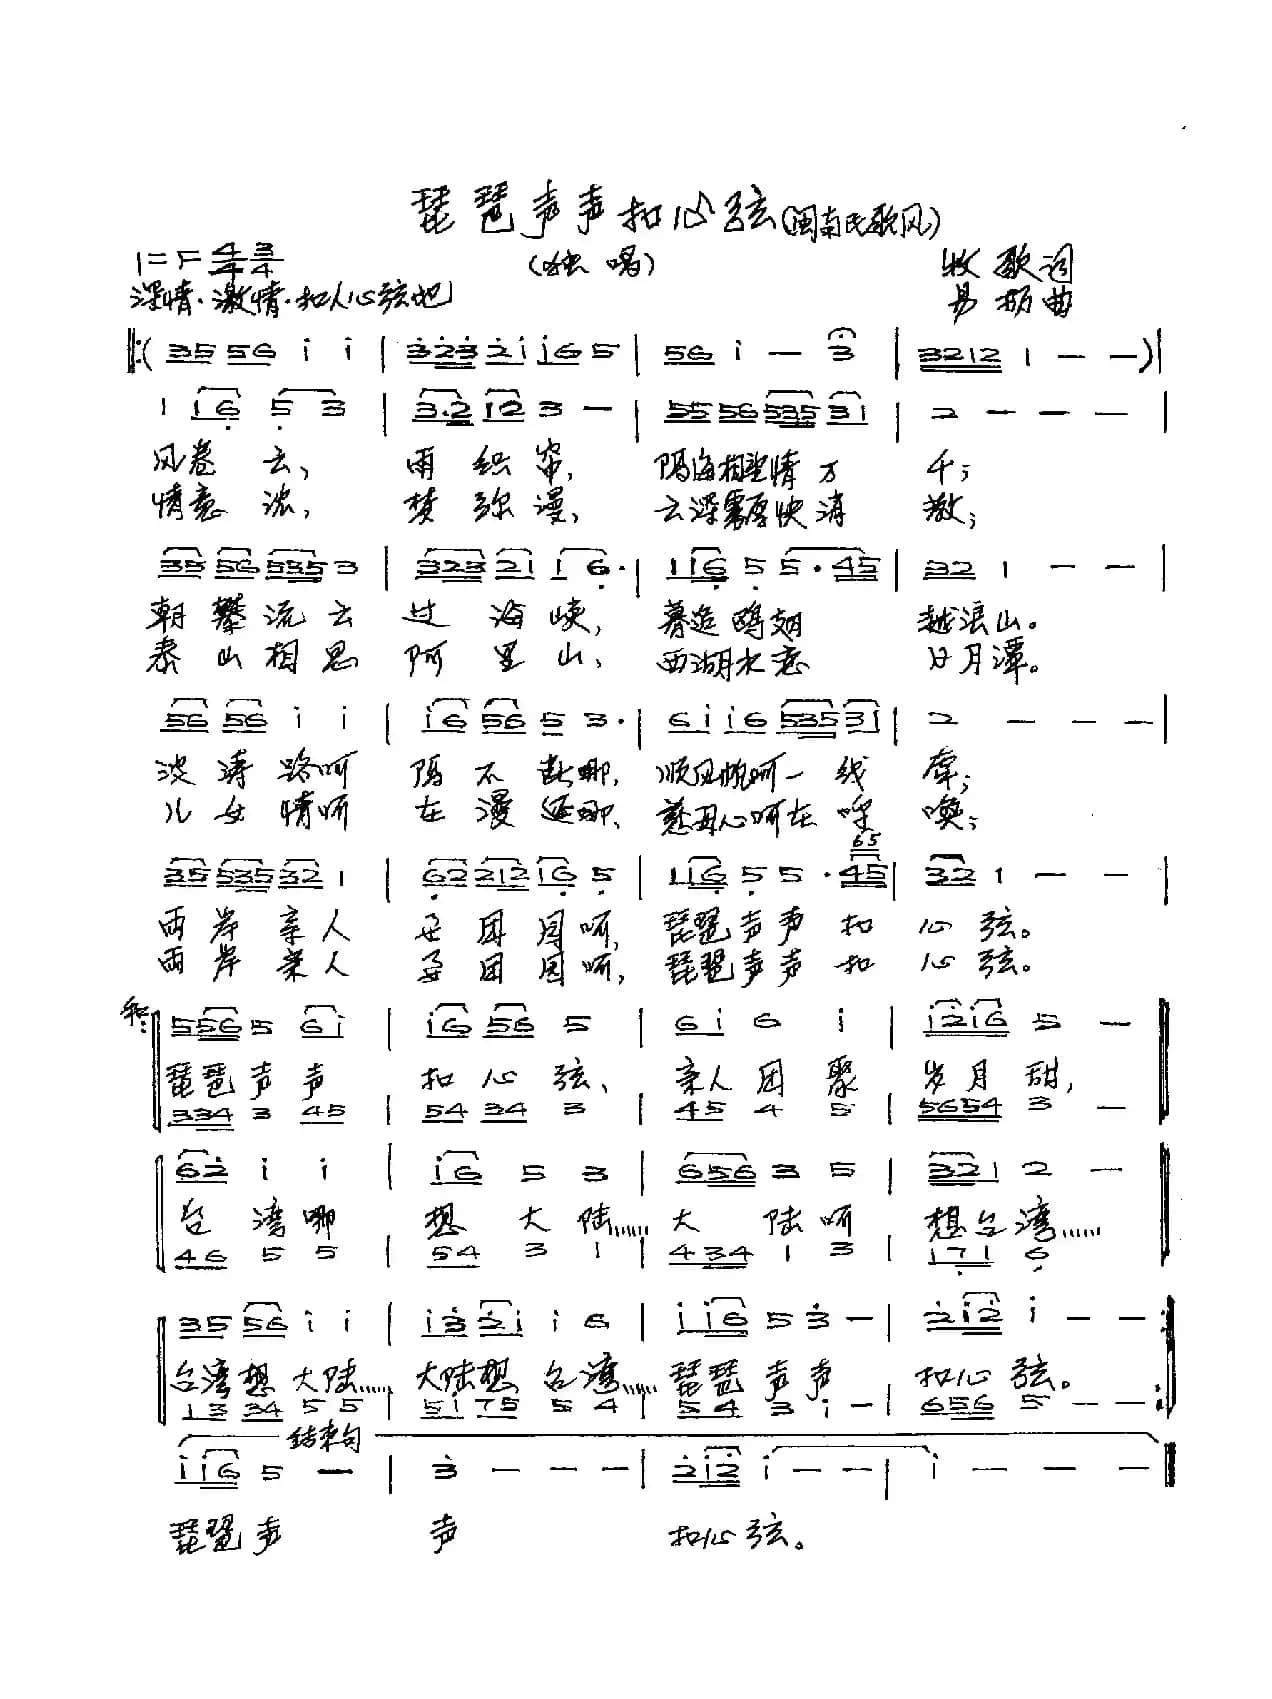 琵琶声声扣心弦(闽南民歌风)
1=F 4/4 3/4 (独唱) 牧歌词
深情·激情·扣人心弦地 易 曲
‖:( 35 56 i i | 3·23 2i i65 | 56 i — 3 | 3212 1 — — )|
1 16 5 3 | 3·2 12 3 — | 55 56 535 31 | 2 — — —
风卷云, 雨织帘, 隔海相望情万千;
情意浓, 梦弥漫, 云深雾厚快消散;
35 56 535 3 | 323 21 1 6· | 116 5 5·45 | 32 1 — —
朝攀流云过海峡, 暮追鸥翅越浪山。
泰山相思阿里山, 西湖水恋日月潭。
56 56 i i | i6 56 5 3· | 6i i6 535 31 | 2 — — —
波涛路呵隔不断哪, 顺风帆呵一线牵;
儿女情呵在漫延哪, 慈母心呵在呼唤;
65
35 535 32 1 | 62 212 16 5 | 116 5 5·45 | 32 1 — —
两岸亲人 团圆呵, 琵琶声声扣心弦。
两岸亲人 团圆呵, 琵琶声声扣心弦。
556 5 6i | i6 56 5 | 6i 6 i | i2i6 5 —
琵琶声声扣心弦, 亲人团聚岁月甜,
334 3 45 | 54 34 3 | 45 4 5 | 5654 3 —
62 i i | i6 5 3 | 656 3 5 | 321 2 —
台湾哪想大陆…… 大陆呵想台湾……
46 5 5 | 54 3 1 | 434 1 3 | 171 6
35 56 i i | i3 2i i 6 | i i6 5 3 — | 2i2 i — —
台湾想大陆…… 大陆想台湾…… 琵琶声声扣心弦。
13 34 5 5 | 51 75 5 4 | 54 3 i — | 656 5 — —
结束句
i i6 5 — | 3 — — — | 2i2 i — — | i — — —
琵琶声声扣心弦。